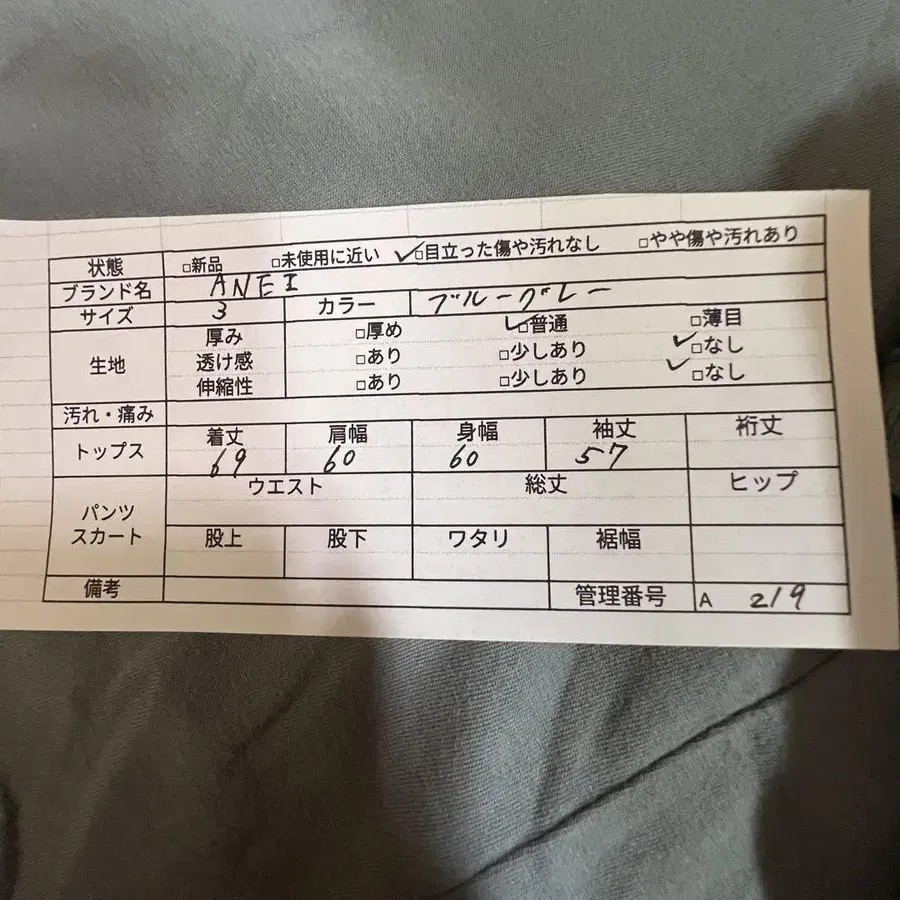 状態 □新品 □未使用に近い ✓□目立った傷や汚れなし □やや傷や汚れあり
ブランド名 ANEI
サイズ 3 カラー ブルーグレー
生地
厚み □厚め ✓□普通 □薄目
透け感 □あり □少しあり ✓□なし
伸縮性 □あり □少しあり ✓□なし
汚れ・痛み
トップス
着丈 肩幅 身幅 袖丈 裄丈
69 60 60 57
パンツ
スカート
ウエスト 総丈 ヒップ
股上 股下 ワタリ 裾幅
備考 管理番号 A 219